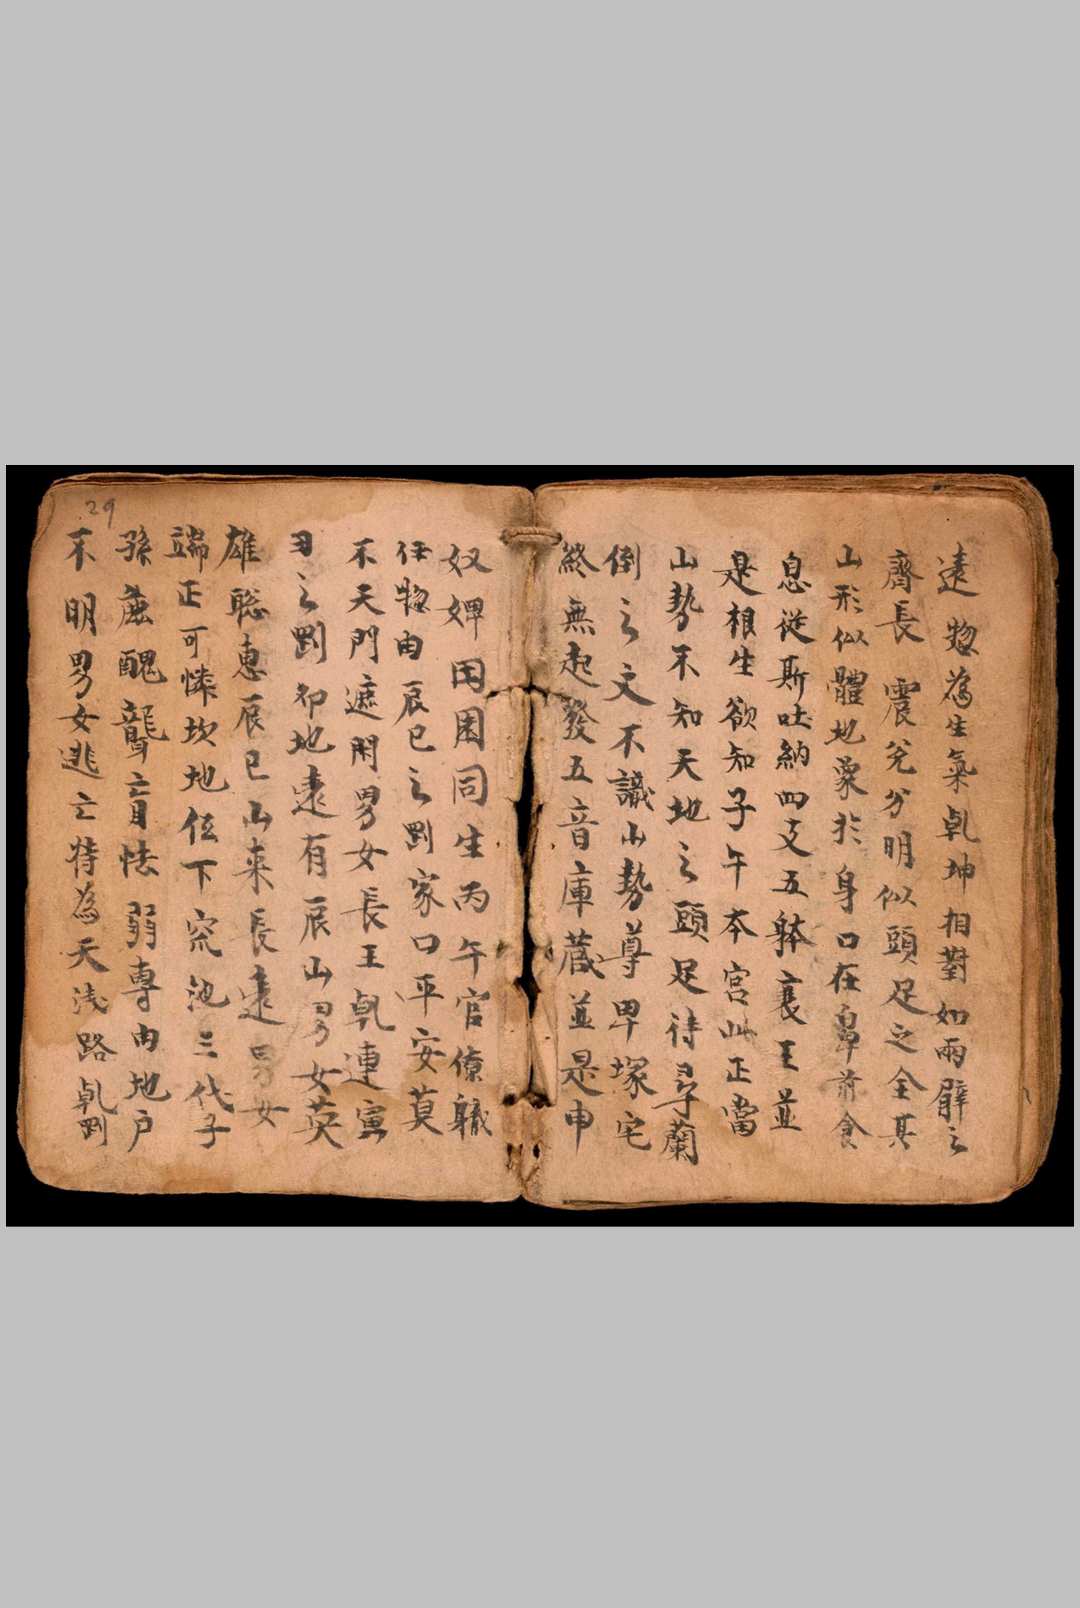 遠惣為生氣乹坤相對如兩臂之
齊長震兊分明似頭足之全其
山形似體地象於身口在鼻前食
息從斯吐納四支五躰襄王並
是相生欲知子午本宮此正當
山勢不知天地之頭足待尋蘭
倒之文不識山勢尊卑塚宅
終無起發五音庫蔵並是申
奴婢因圂同生丙午官僚軄
任惣由辰巳之㓻家口平安莫
不天門遮閇男女長王乹連寅
丑之㓻卯地遠有辰山男女英
雄聡惠辰巳山來長遠男女
端正可憐坎地位下宂池三代子
孫尫醜聾盲怯弱專由地戶
不明男女逃亡特為天浅路乹㓻
29